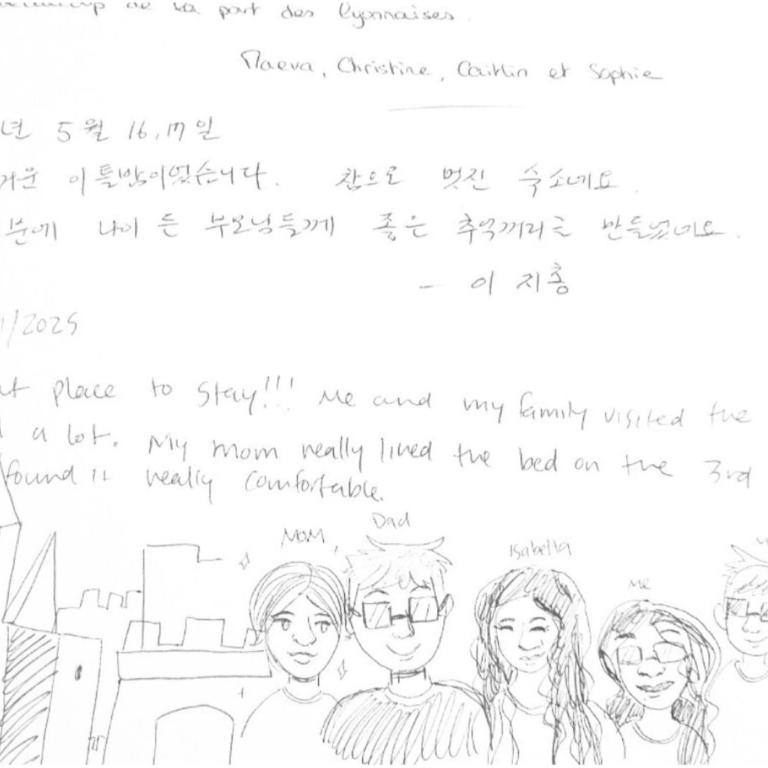 de la part des lyonnaises.
Maeva, Christine, Caitlin et Sophie
년 5월 16, 17일
거운 이틀밤이었습니다. 참으로 멋진 숙소네요.
분에 나이 든 부모님들께 좋은 추억꺼리를 만들었네요.
- 이 지홍
1/2025
place to stay!!! Me and my family visited the
a lot. My mom really liked the bed on the 3rd
found it really comfortable.
Mom
Dad
Isabella
Me